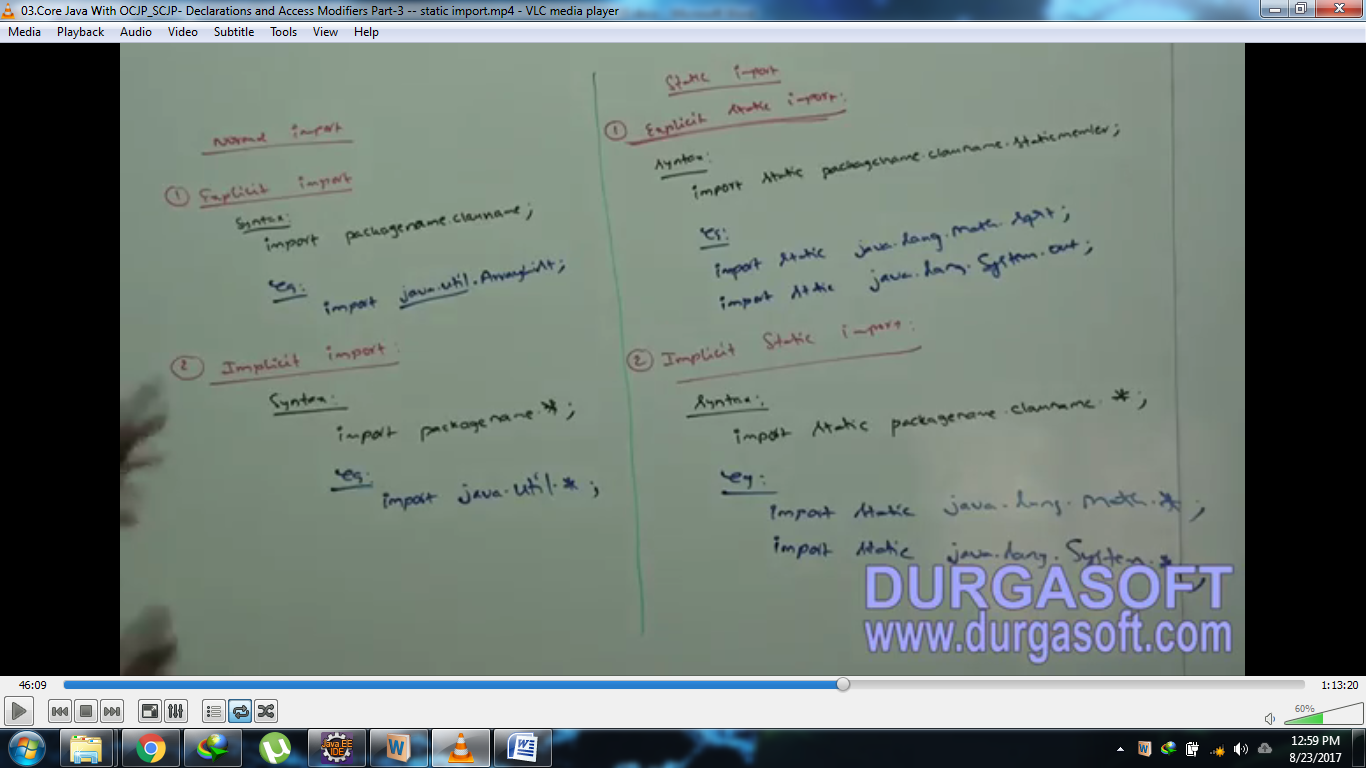 03.Core Java With OCJP_SCJP- Declarations and Access Modifiers Part-3 -- static import.mp4 - VLC media player
Media Playback Audio Video Subtitle Tools View Help
Normal import
1 Explicit import
Syntax:
import packagename.classname;
eg:
import java.util.ArrayList;
2 Implicit import:
Syntax:
import packagename.*;
eg:
import java.util.*;
Static import
1 Explicit static import:
Syntax:
import static packagename.classname.staticmember;
eg:
import static java.lang.Math.sqrt;
import static java.lang.System.out;
2 Implicit Static import:
Syntax:
import static packagename.classname.*;
eg:
import static java.lang.Math.*;
import static java.lang.System.*;
DURGASOFT
www.durgasoft.com
46:09
1:13:20
60%
Java EE
IDE
12:59 PM
8/23/2017